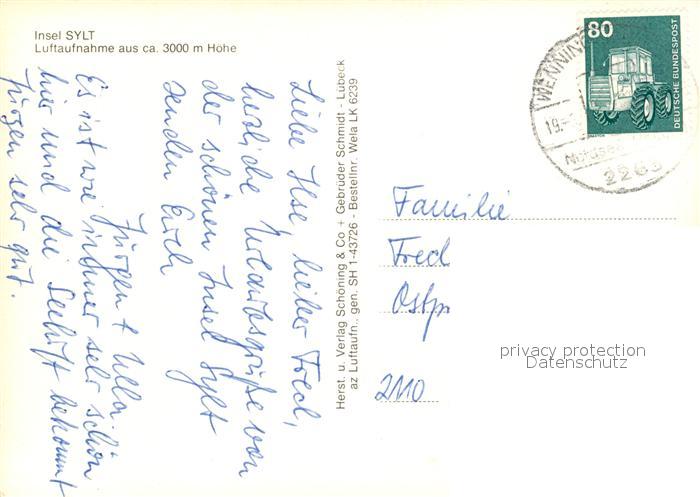 Insel SYLT
Luftaufnahme aus ca. 3000 m Höhe
Liebe Ilse, lieber Fred,
herzliche Urlaubsgrüße von
der schönen Insel Sylt
senden Euch
Jürgen + Ulla.
Es ist wie immer sehr schön
hier und die Seeluft bekommt
Jürgen sehr gut.
Herst. u. Verlag Schöning & Co + Gebrüder Schmidt - Lübeck
az Luftaufn., gen. SH 1-43726 - Bestellnr. Wela LK 6239
80
DEUTSCHE BUNDESPOST
WENNING
19.
Nordsee
2283
Familie
Fred
Ostpr
2110
privacy protection
Datenschutz